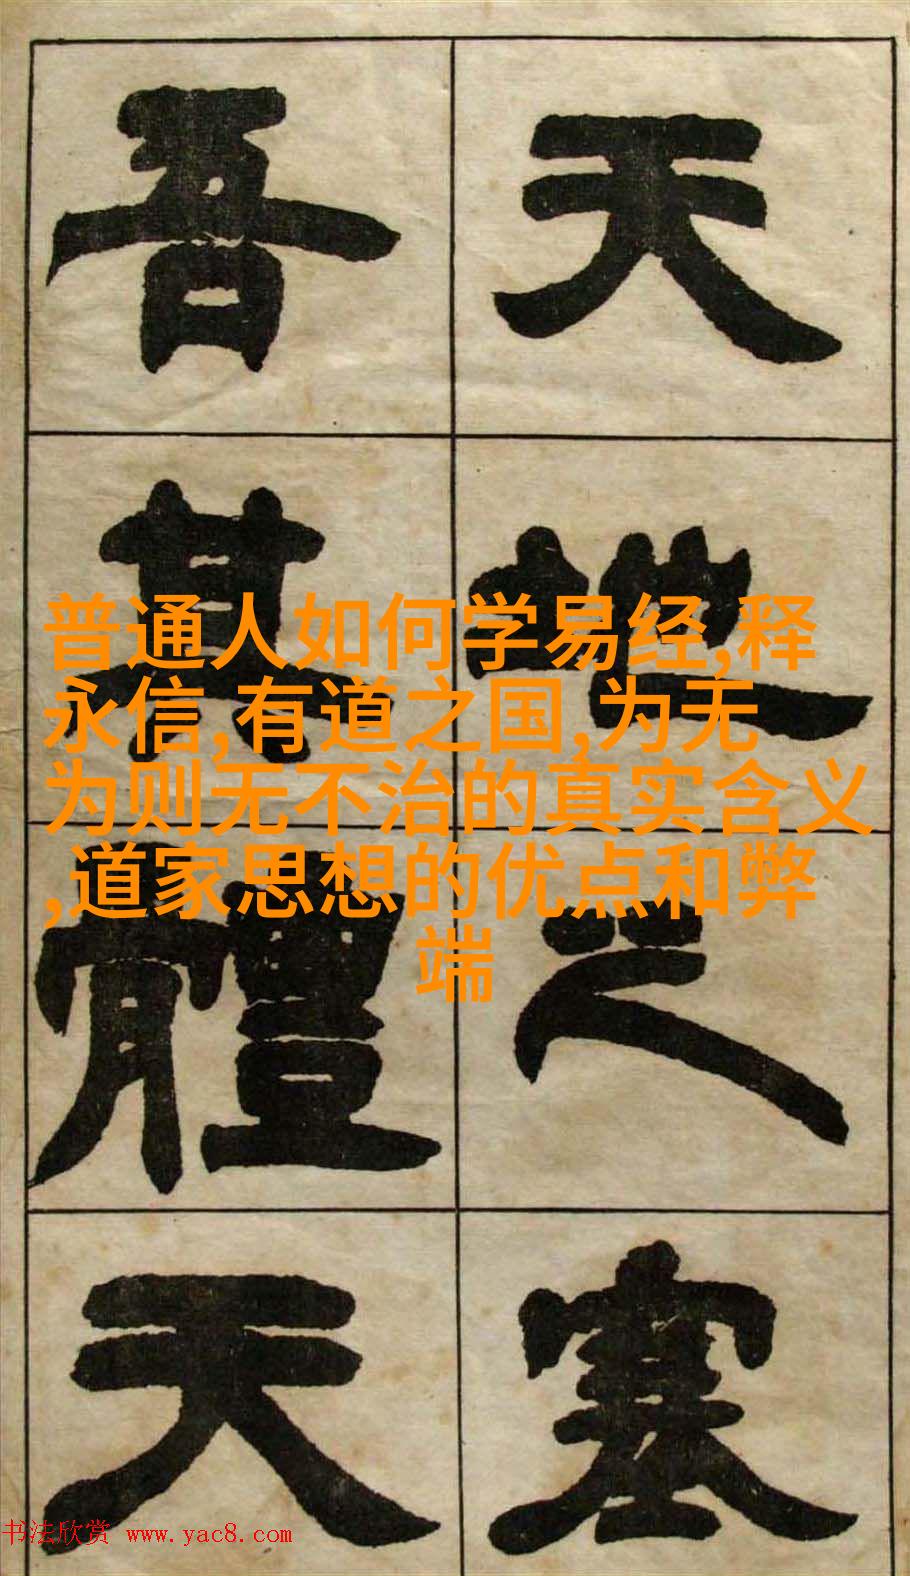 天地之塞
吾其體天
普通人如何学易经,释
永信,有道之国,为无
为则无不治的真实含义
,道家思想的优点和弊
端
书法欣赏 www.yac8.com